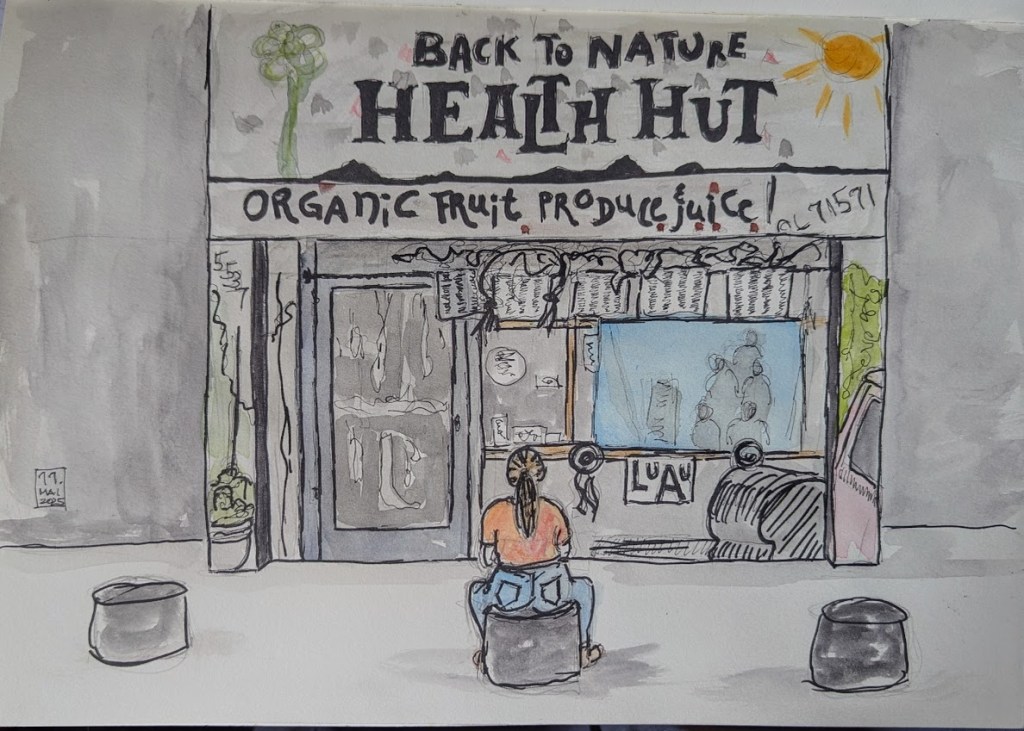 BACK To NATURE
HEALTH HUT
ORGANiC FRuit PRODUCE & juice! 71571
LUAU
11.
MAI
2025